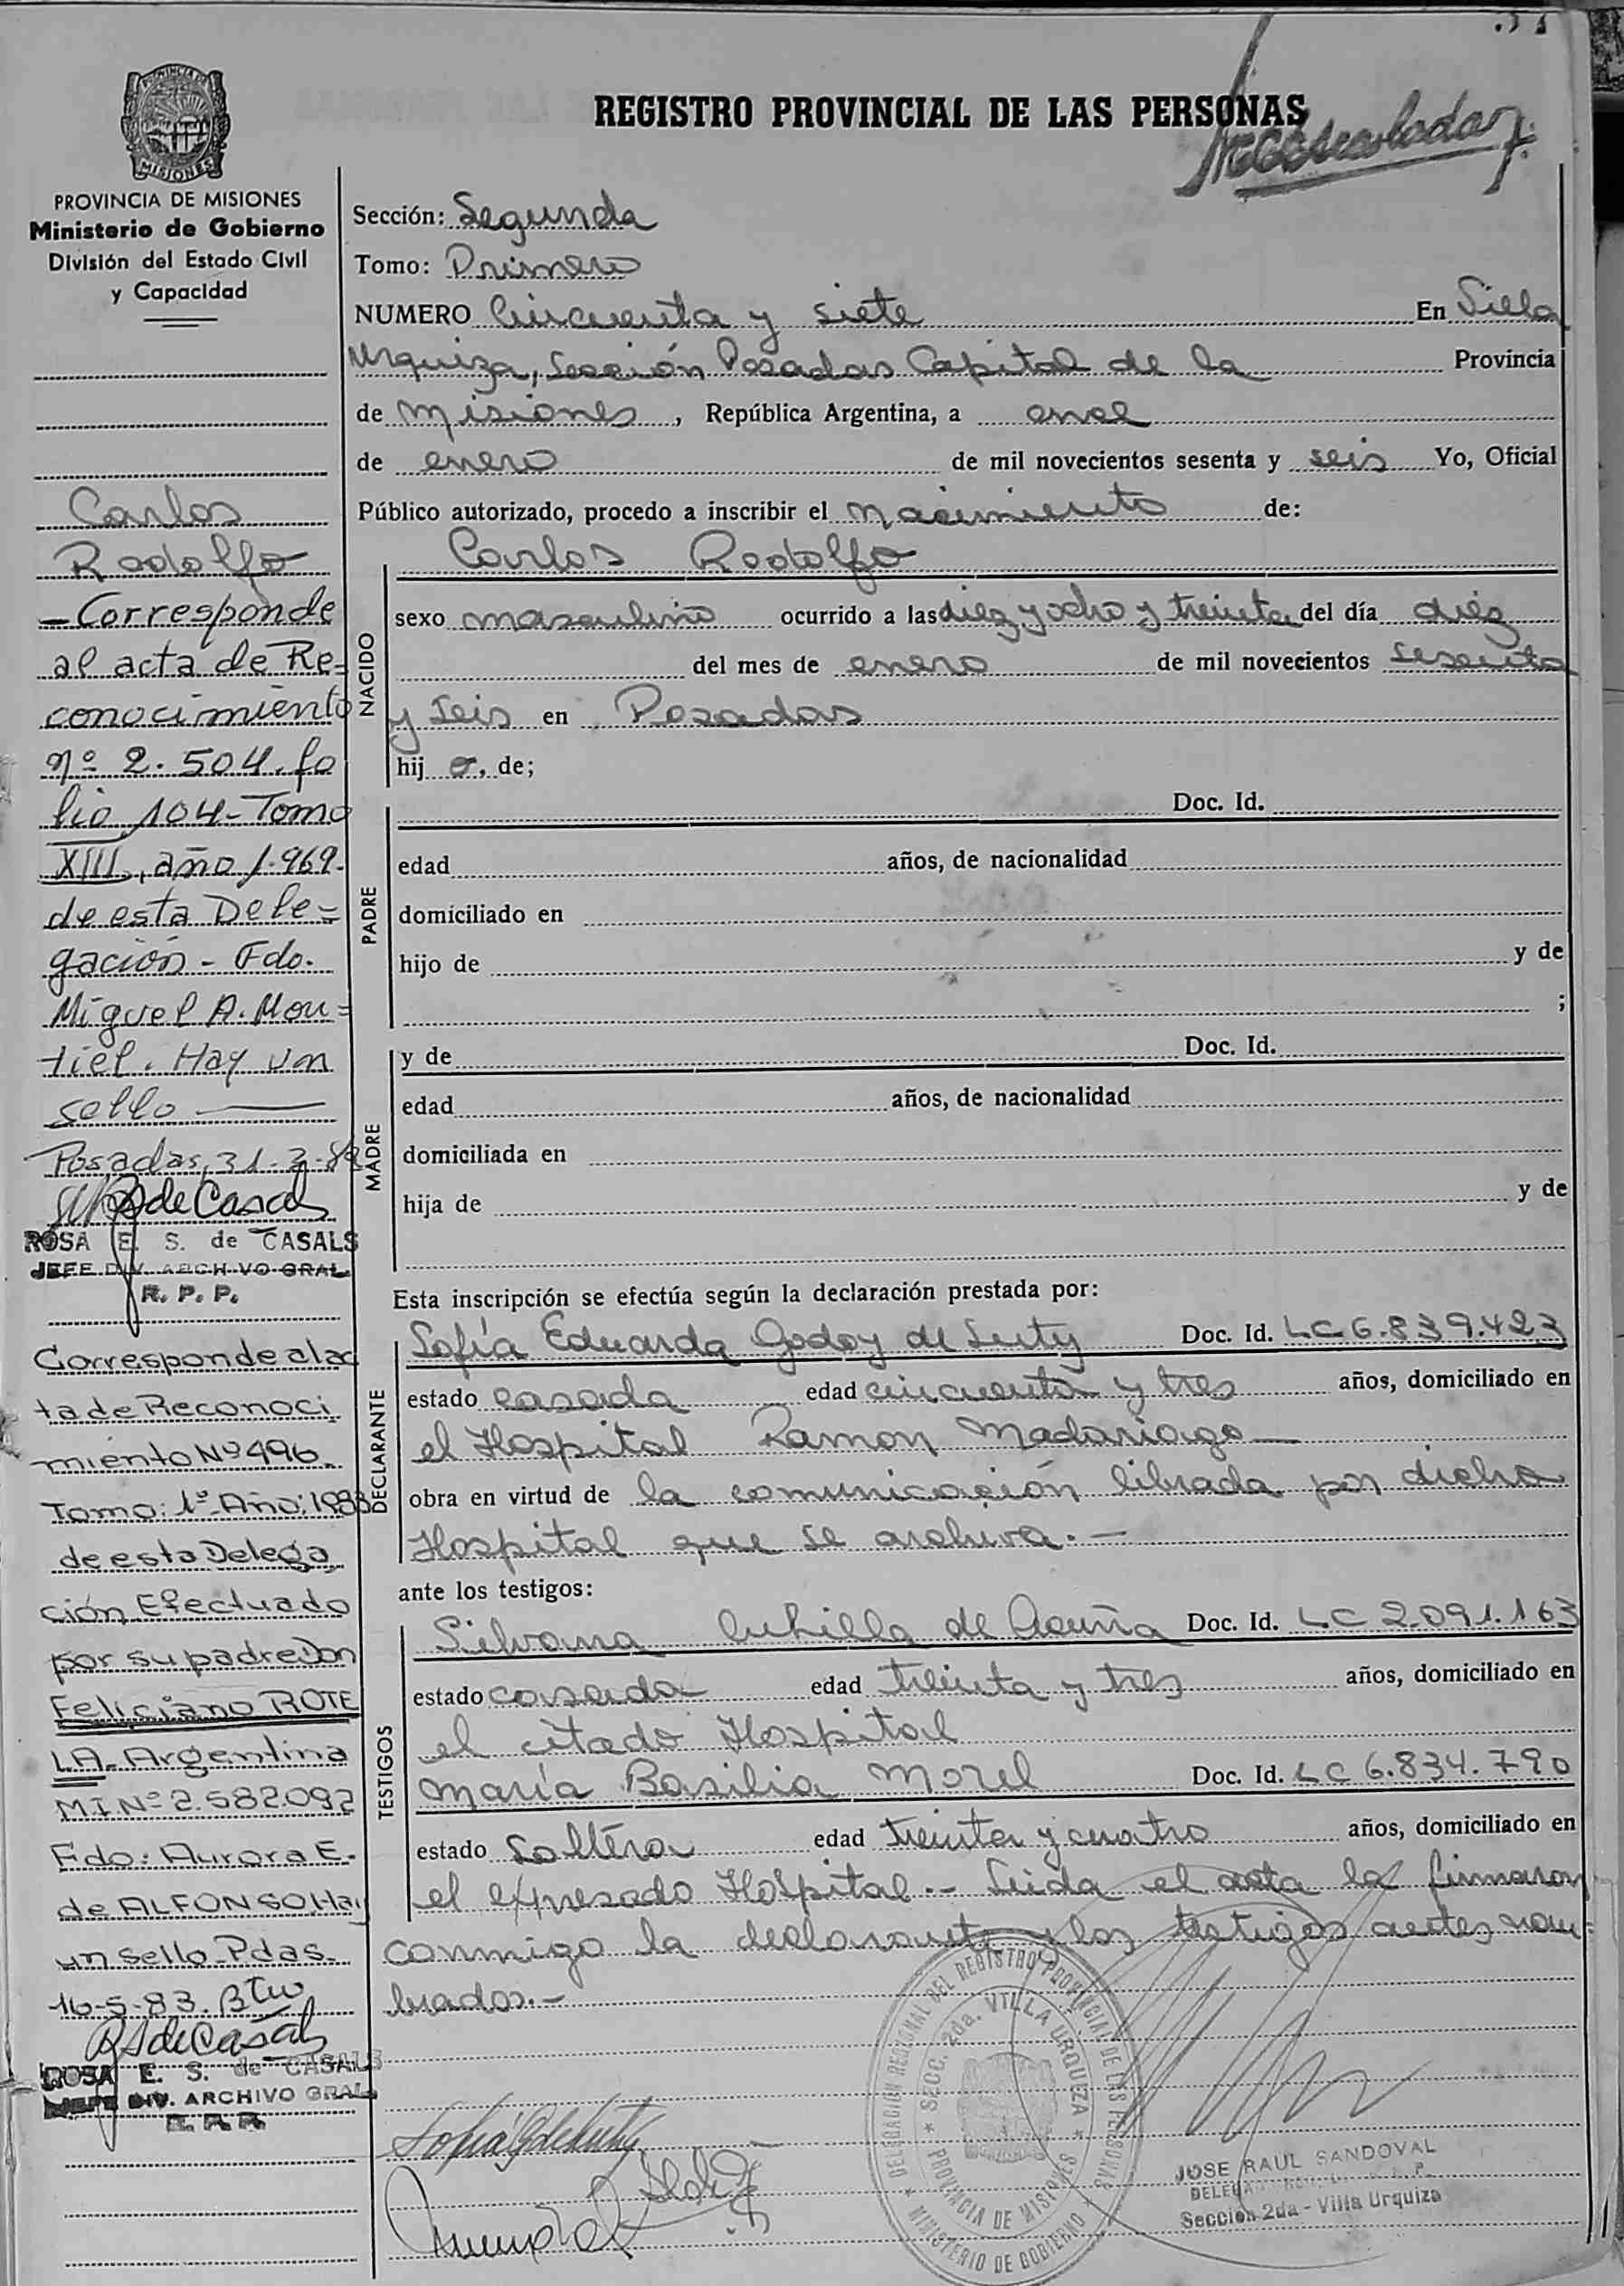 REGISTRO PROVINCIAL DE LAS PERSONAS
PROVINCIA DE MISIONES
Ministerio de Gobierno
División del Estado Civil
y Capacidad
Carlos
Rodolfo
- Corresponde
al acta de Re=
conocimiento
nº 2.504. fo
lio 104 - Tomo
XIII, año 1.969.
de esta Dele=
gación - Fdo.
Miguel A. Mon=
tiel. Hay un
sello
Posadas, 31.3.82
ROSA E. S. de CASALS
JEFE DIV. ARCHIVO GRAL.
R. P. P.
Corresponde al ac
ta de Reconoci
miento Nº 496.
Tomo: 1º Año: 1983
de esta Delega
ción Efectuado
por su padre Don
Feliciano ROTE
LA - Argentina
M.I. Nº 2.582.092
Fdo: Aurora E.
de ALFONSO. Hay
un sello. Pdas.
16-5-83.
ROSA E. S. de CASALS
JEFE DIV. ARCHIVO GRAL.
Sección: Segunda
Tomo: Primero
NUMERO Cincuenta y siete En Villa
Urquiza, Sección Posadas Capital de la Provincia
de Misiones, República Argentina, a once
de enero de mil novecientos sesenta y seis Yo, Oficial
Público autorizado, procedo a inscribir el nacimiento de:
NACIDO
Carlos Rodolfo
sexo masculino ocurrido a las diez y ocho y treinta del día diez
del mes de enero de mil novecientos sesenta
y seis en Posadas
hij o, de;
PADRE
Doc. Id.
edad años, de nacionalidad
domiciliado en
hijo de y de
;
MADRE
y de Doc. Id.
edad años, de nacionalidad
domiciliada en
hija de y de
Esta inscripción se efectúa según la declaración prestada por:
DECLARANTE
Sofía Eduarda Godoy de Doc. Id. LC 6.839.423
estado casada edad cincuenta y tres años, domiciliado en
el Hospital Ramon Madariaga
obra en virtud de la comunicación librada por dicho
Hospital que se archiva.-
ante los testigos:
TESTIGOS
Silvana de Acuña Doc. Id. LC 2.091.163
estado casada edad treinta y tres años, domiciliado en
el citado Hospital
María Basilia Morel Doc. Id. LC 6.834.790
estado soltera edad treinta y cuatro años, domiciliado en
el expresado Hospital.- Leida el acta la firmaron
conmigo la declarante y los testigos antes nom=
brados.-
DELEGACION REGIONAL DEL REGISTRO PROVINCIAL DE LAS PERSONAS
SECC. 2da. VILLA URQUIZA
PROVINCIA DE MISIONES
MINISTERIO DE GOBIERNO
JOSE RAUL SANDOVAL
Sección 2da - Villa Urquiza